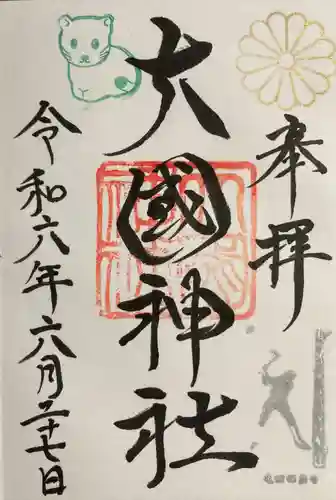 奉拝
大國神社
令和六年六月二十七日